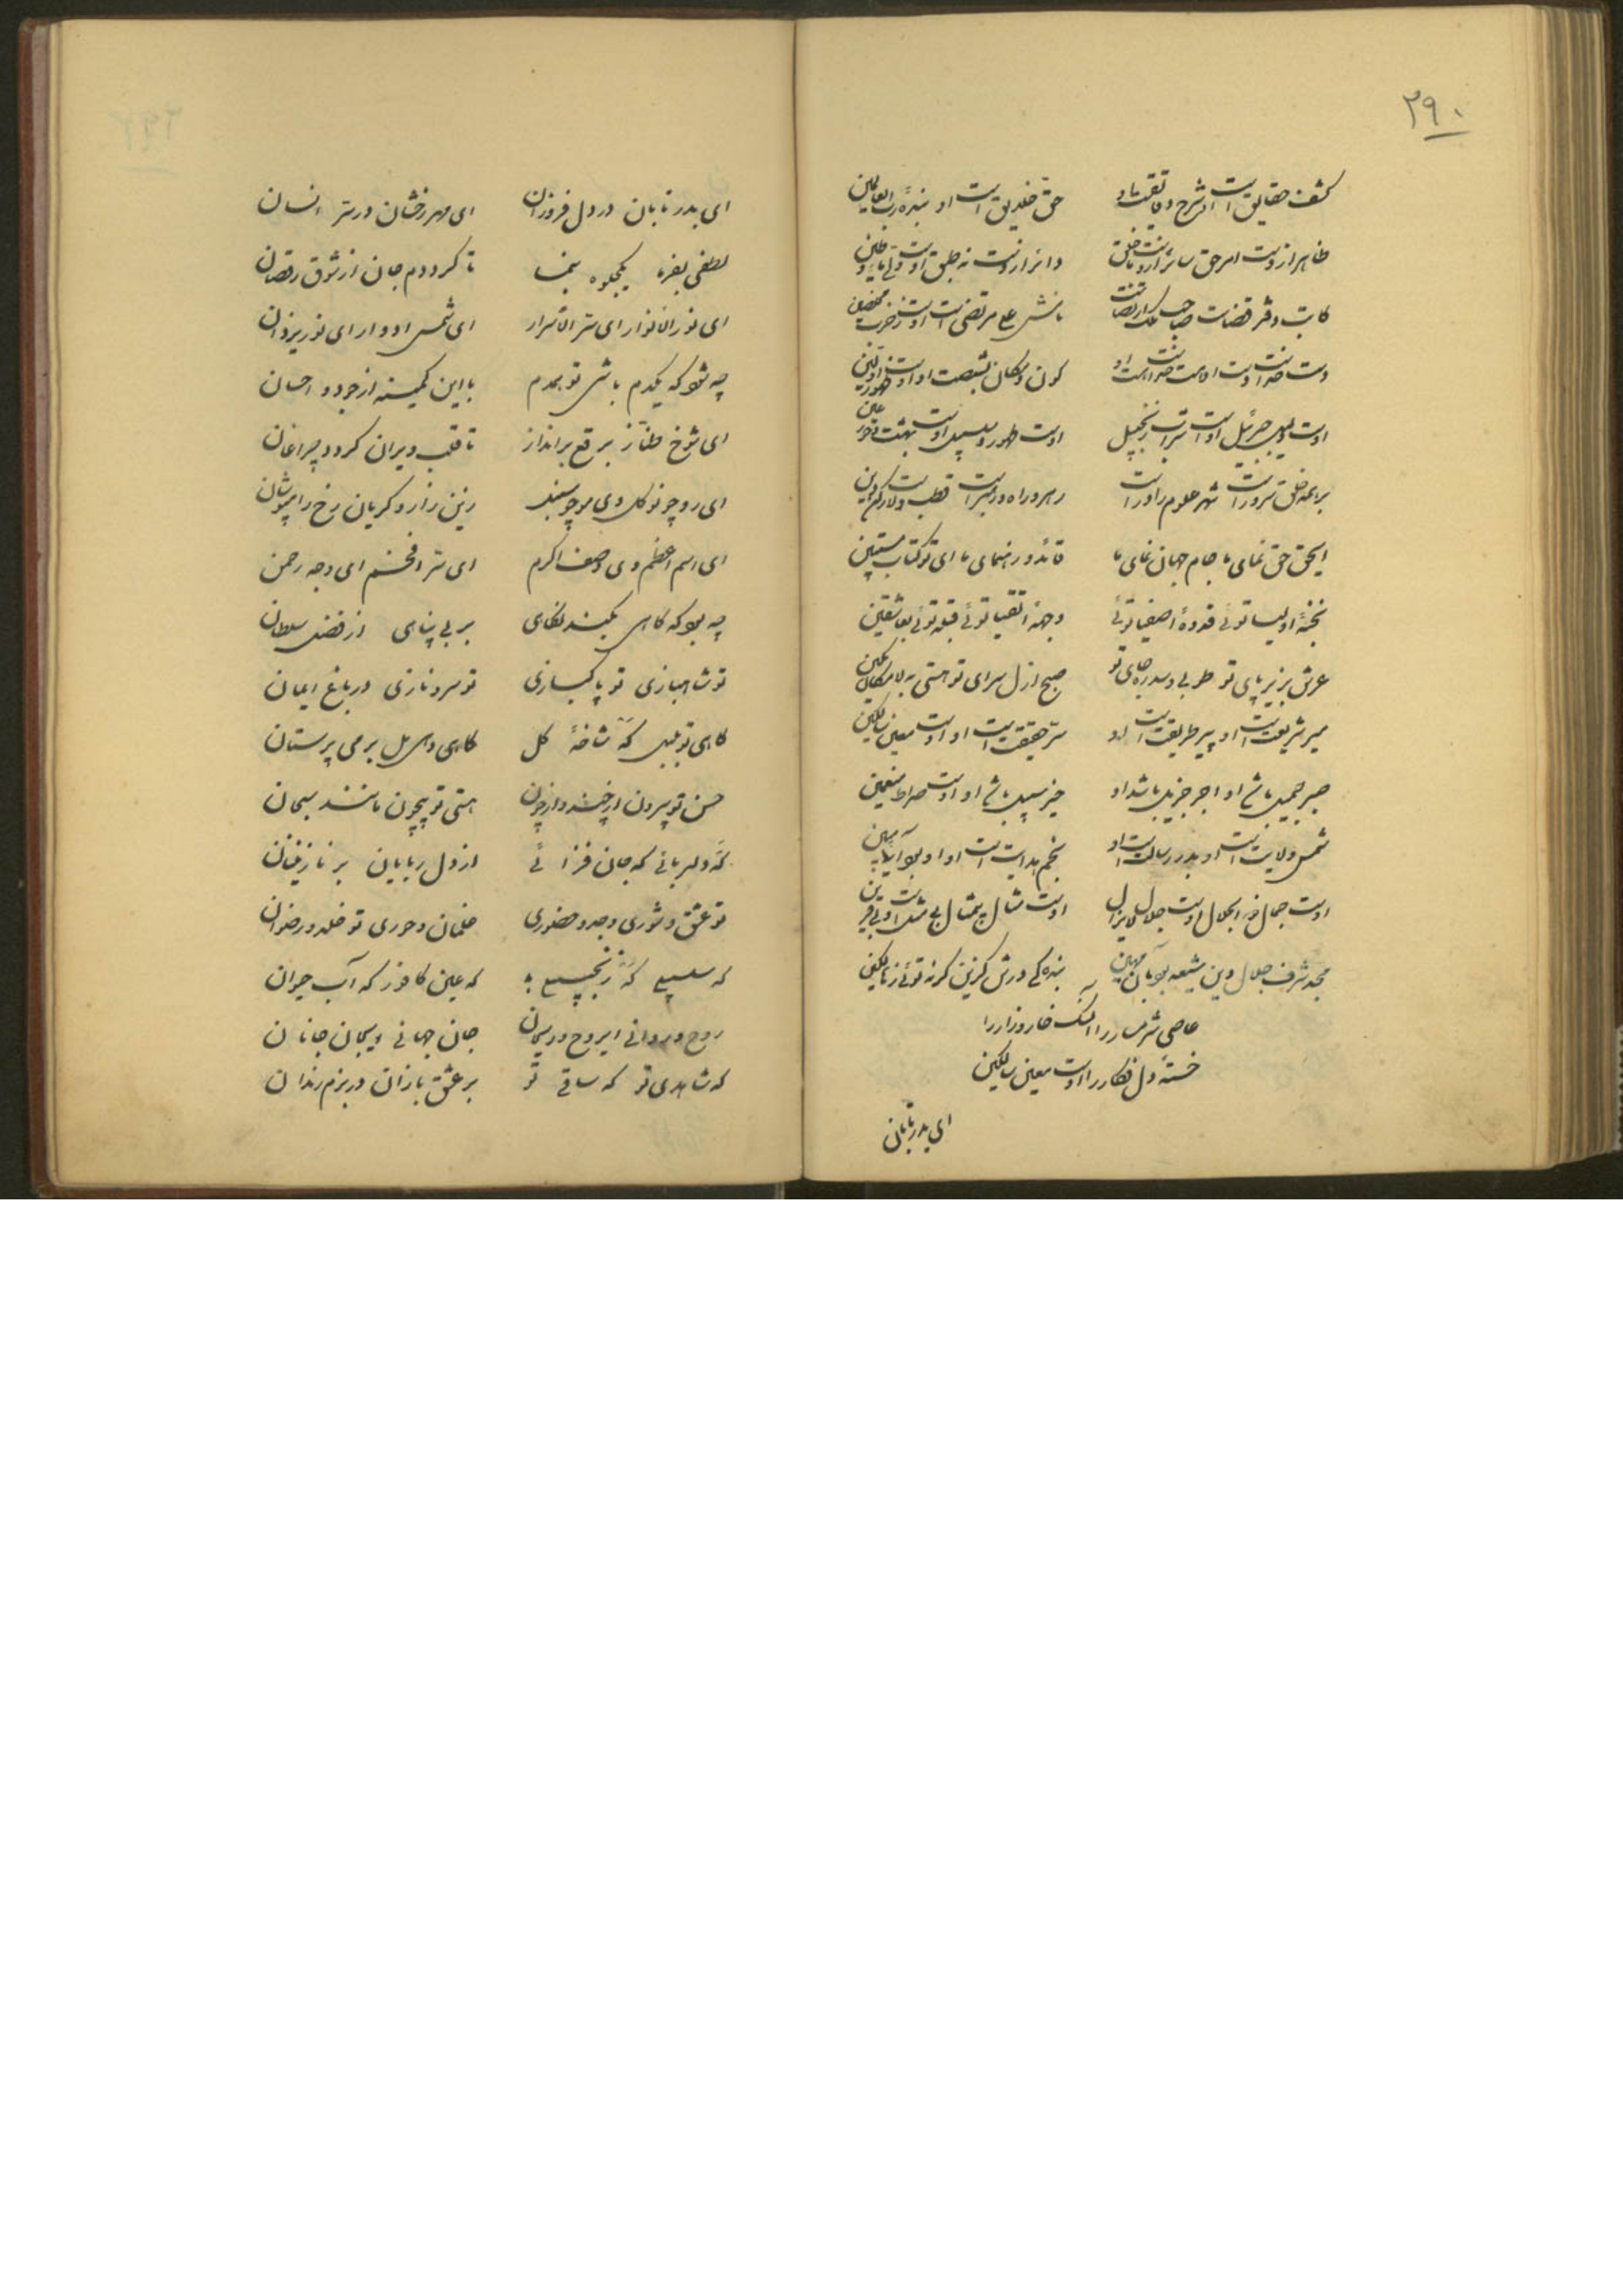 ۲۹۰
کشف حقایق است او شرح دقایقست او حق خلایق است او بنده رب العالمین
ظاهر ازوست امر حق سائر ازوست ما خلق دائر ازوست نه طبق اوست ولی ماء و طین
کاتب دفتر قضاست صاحب ملک ارتضاست نامش علی مرتضی است اوست
دست خداست اوست کون و مکان بشصت او اوست
اوست دلیل جبرئیل اوست شراب زنجبیل اوست طهور و سلسبیل اوست بهشت و حور عین
بر همه خلق سرور است شهر علوم را در است رهرو راه و رهبر است قطب ولا و رکن دین
ایحق حق نمای ما جام جهان نمای ما قائد و رهنمای ما ای تو کتاب مستبین
نخبهٔ اولیا توئی قدوهٔ اصفیا توئی وجههٔ اتقیا توئی قبله توئی بعاشقین
عرش بزیر پای تو طوبی و سدره جای تو صبح ازل سرای تو هستی به لامکان مکین
میر شریعت است او پیر طریقت است او سر حقیقت است او اوست معین سالکین
صبر جمیل باشد او اجر جزیل باشد او خیر سبیل باشد او اوست صراط منعمین
شمس ولایت است او بدر رسالت است او نجم هدایت است او او بود آیهٔ مبین
اوست جمال ذو الجلال اوست جلال لایزال اوست مثال بیمثال بی مثل است و بی قرین
مجد شرف جلال دین شیعه بود بآن مهین بنده کی درش گزین گر نه توئی ز هالکین
عاصی شرمسار را آن سگ خار و زار را
خسته دل فکار را اوست معین سالکین
ای بدر تابان
ای بدر تابان در دل فروزان ای مهر رخشان در سر انسان
لطفی بفرما یکجلوه بنما تا گرددم جان از شوق رقصان
ای نور الانوار ای سر الاسرار ای شمس ادوار ای نور یزدان
چه شود که یکدم باشی تو همدم با این کمینه از جود و احسان
ای شوخ طناز برقع برانداز تا قلب ویران گردد چراغان
ای رو چو نوگل وی مو چو سنبل زین زار و گریان رخ را مپوشان
ای اسم اعظم وی وصف اکرم ای سر افخم ای وجه رحمن
چه بود که گاهی بکند نگاهی بر بی پناهی از فضل سلطان
تو شاهبازی تو پاکبازی تو سرو نازی در باغ ایمان
گاهی تو بلبل گه شاخهٔ گل گاهی دهی مل بر می پرستان
حسن تو بیرون از چند و از چون هستی تو بیچون مانند سبحان
گه دلربائی گه جان فزائی از دل ربایان بر نازنینان
تو عشق و شوری وجد و حضوری غلمان و حوری تو خلد و رضوان
گه سلسبیلی گه زنجبیلی گه عین کافور گه آب حیوان
روح و روانی ای روح و ریحان جان جهانی ویجان جانان
گه شاهدی تو گه ساقی تو بر عشق بازان در بزم رندان